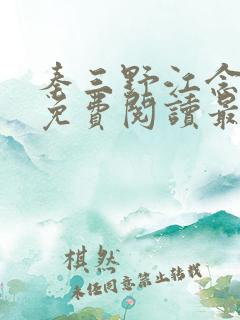 秦三野江念
免費閱讀最
棋然
未经同意禁止转载